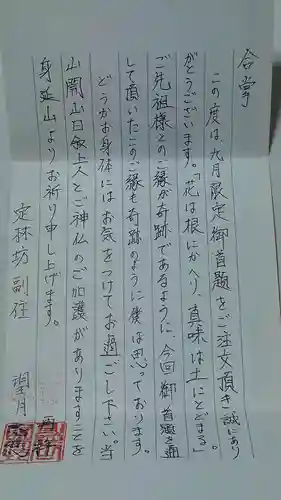 合掌
この度は九月限定御首題をご注文頂き誠にあり
がとうございます。「花は根にかへり、真味は土にとどまる」
ご先祖様とのご縁が奇跡であるように、今回御首題を通
して頂いたこのご縁も奇跡のように僕は思っております。
どうかお身体にはお気をつけてお過ごし下さい。当
山開山日叡上人とご神仏のご加護がありますことを
身延山よりお祈り申し上げます。
定林坊 副住 望月